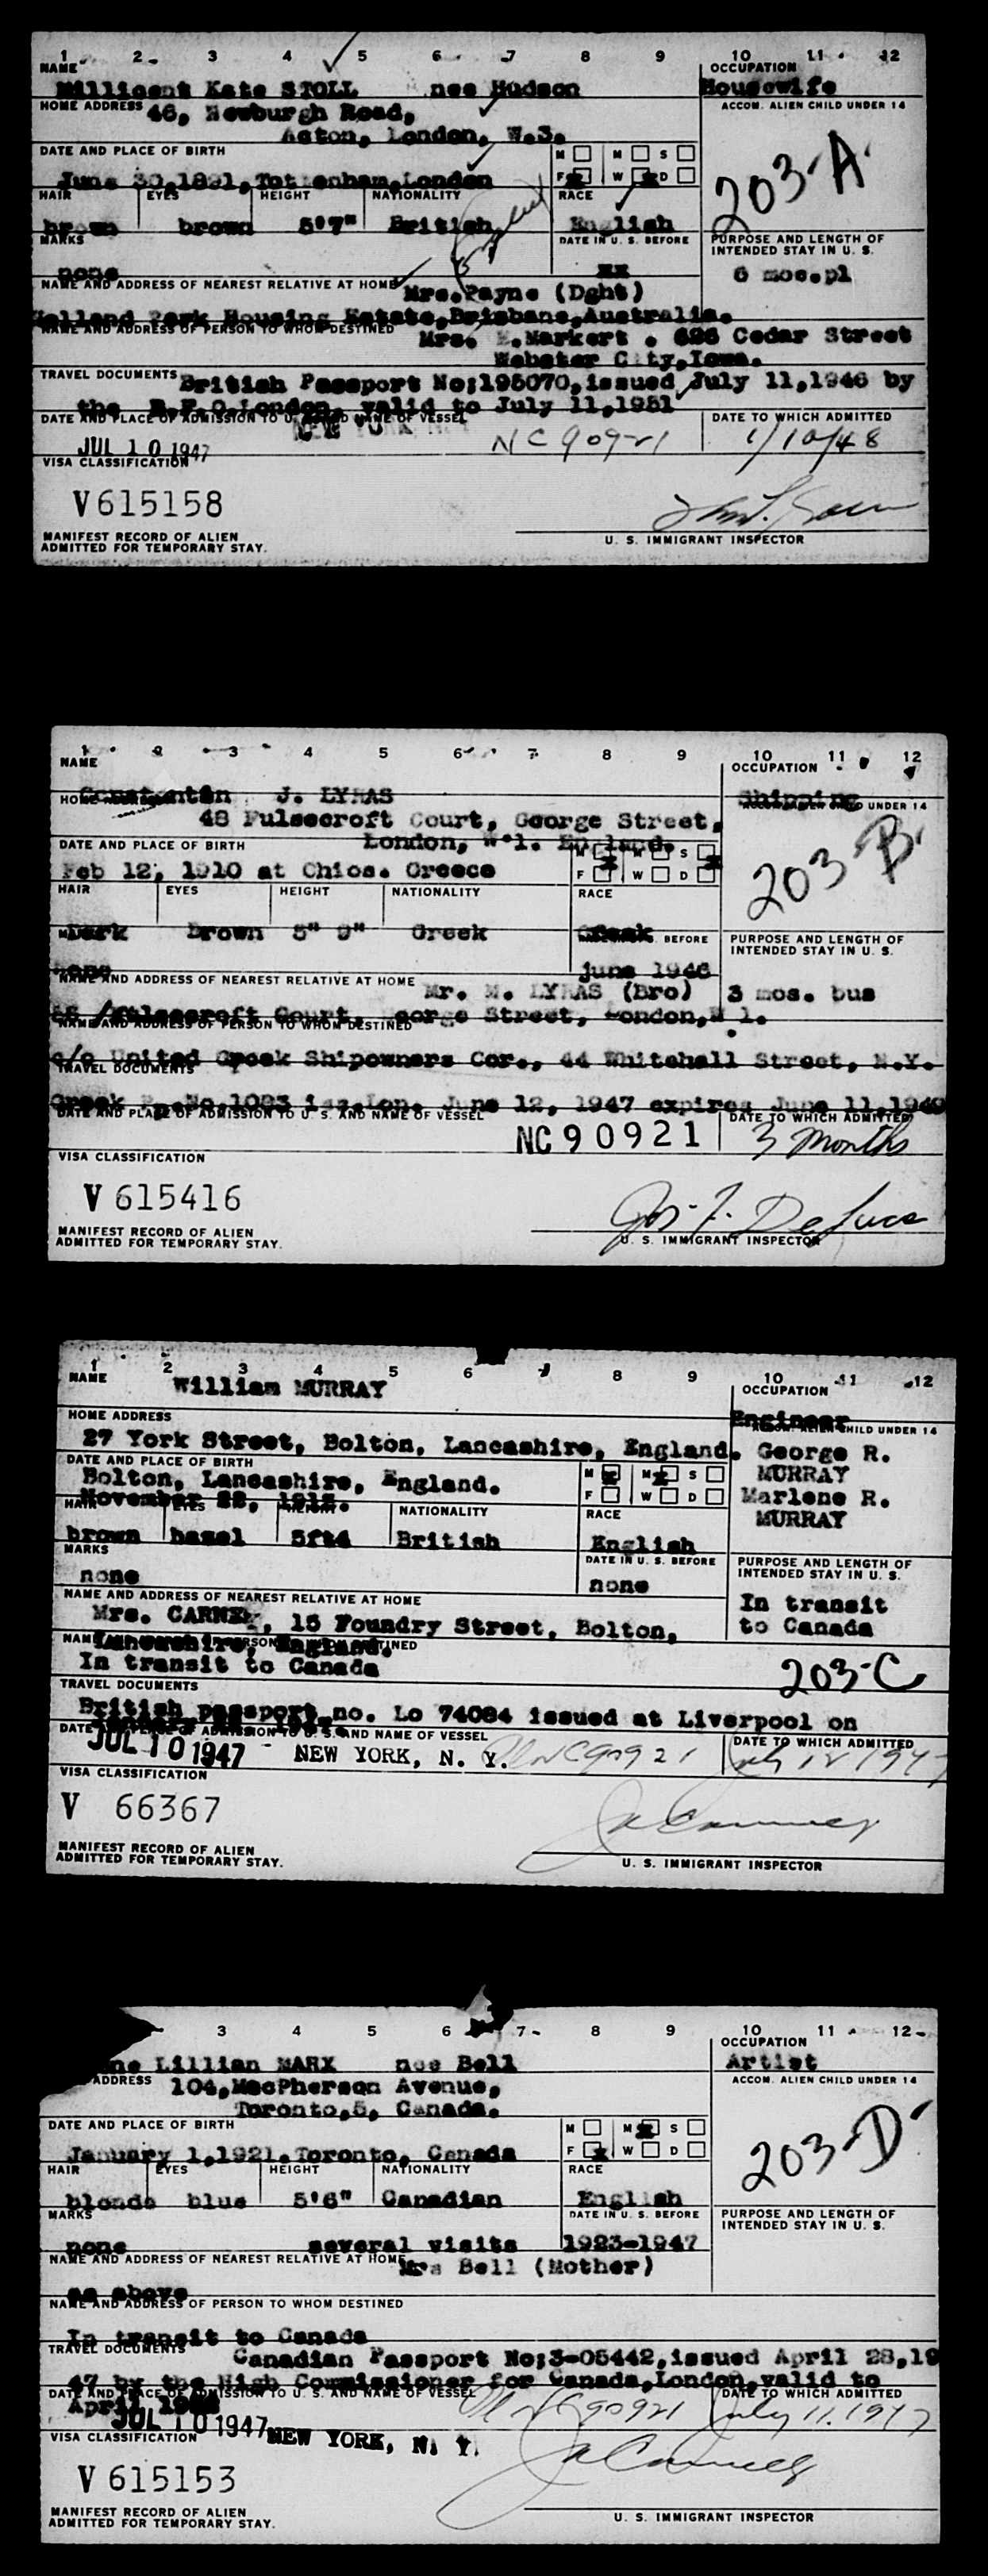 1 2 3 4 5 6 7 8 9 10 11 12
NAME OCCUPATION
Millicent Kate STOLL nee Hudson Housewife
HOME ADDRESS 46, Newburgh Road, ACCOM. ALIEN CHILD UNDER 14
Acton, London, W.3.
DATE AND PLACE OF BIRTH M M S
June 30,1891,Tottenham,London F W D
203-A
HAIR EYES HEIGHT NATIONALITY RACE
brown brown 5'7" British English
MARKS DATE IN U. S. BEFORE PURPOSE AND LENGTH OF INTENDED STAY IN U. S.
none xx 6 mos.pl
NAME AND ADDRESS OF NEAREST RELATIVE AT HOME Mrs.Payne (Dght)
Holland Park Housing Estate,Brisbane,Australia.
NAME AND ADDRESS OF PERSON TO WHOM DESTINED Mrs. E.Markert . 626 Cedar Street
Webster City,Iowa.
TRAVEL DOCUMENTS British Passport No:195070,issued July 11,1946 by
the B.P.O.London, valid to July 11,1951
DATE AND PLACE OF ADMISSION TO U. S. AND NAME OF VESSEL DATE TO WHICH ADMITTED
JUL 10 1947 NC 90921 1/10/48
VISA CLASSIFICATION
V615158
MANIFEST RECORD OF ALIEN U. S. IMMIGRANT INSPECTOR
ADMITTED FOR TEMPORARY STAY.
1 2 3 4 5 6 7 8 9 10 11 12
NAME OCCUPATION
Constantin J. LYRAS Shipping
HOME ADDRESS UNDER 14
48 Fulsecroft Court, George Street,
DATE AND PLACE OF BIRTH London, W.1. England.
M M S
Feb 12, 1910 at Chios. Greece F W D
203 B
HAIR EYES HEIGHT NATIONALITY RACE
Dark Brown 5" 9" Greek Greek
BEFORE PURPOSE AND LENGTH OF INTENDED STAY IN U. S.
None june 1946
NAME AND ADDRESS OF NEAREST RELATIVE AT HOME Mr. M. LYRAS (Bro) 3 mos. bus
48 Fulsecroft Court, George Street, London,W 1.
NAME AND ADDRESS OF PERSON TO WHOM DESTINED
c/o United Greek Shipowners Cor., 44 Whitehall Street, N.Y.
TRAVEL DOCUMENTS
Greek P.No.1093 iss.Lon. June 12, 1947 expires June 11,1949
DATE AND PLACE OF ADMISSION TO U. S. AND NAME OF VESSEL DATE TO WHICH ADMITTED
NC90921 3 months
VISA CLASSIFICATION
V 615416
Jos. F. DeLuca
MANIFEST RECORD OF ALIEN U. S. IMMIGRANT INSPECTOR
ADMITTED FOR TEMPORARY STAY.
1 2 3 4 5 6 7 8 9 10 11 12
NAME William MURRAY OCCUPATION
HOME ADDRESS Engineer CHILD UNDER 14
27 York Street, Bolton, Lancashire, England. George R.
DATE AND PLACE OF BIRTH MURRAY
Bolton, Lancashire, England. M M S Marlene R.
November 22, F W D MURRAY
HAIR EYES NATIONALITY RACE
brown hazel 5ft4 British English
MARKS DATE IN U. S. BEFORE PURPOSE AND LENGTH OF INTENDED STAY IN U. S.
none none
NAME AND ADDRESS OF NEAREST RELATIVE AT HOME In transit
Mrs. 15 Foundry Street, Bolton, to Canada
Lancashire, England.
In transit to Canada 203-C
TRAVEL DOCUMENTS
British passport no. Lo 74084 issued at Liverpool on
DATE AND PLACE OF ADMISSION TO U. S. AND NAME OF VESSEL DATE TO WHICH ADMITTED
JUL 10 1947 - NEW YORK, N. Y. NC90921 July 12 1947
VISA CLASSIFICATION
V 66367
MANIFEST RECORD OF ALIEN U. S. IMMIGRANT INSPECTOR
ADMITTED FOR TEMPORARY STAY.
3 4 5 6 7 8 9 10 11 12
OCCUPATION
ne Lillian MARX nee Bell Artist
ADDRESS 104,MacPherson Avenue, ACCOM. ALIEN CHILD UNDER 14
Toronto,5, Canada.
DATE AND PLACE OF BIRTH M M S
January 1,1921.Toronto, Canada F W D
203-D
HAIR EYES HEIGHT NATIONALITY RACE
blonde blue 5'6" Canadian English
MARKS DATE IN U. S. BEFORE PURPOSE AND LENGTH OF INTENDED STAY IN U. S.
none several visits 1923-1947
NAME AND ADDRESS OF NEAREST RELATIVE AT HOME Mrs Bell (Mother)
as above
NAME AND ADDRESS OF PERSON TO WHOM DESTINED
In transit to Canada
TRAVEL DOCUMENTS Canadian Passport No:3-05442,issued April 28,19
47 by the High Commissioner for Canada,London,valid to
DATE AND PLACE OF ADMISSION TO U. S. AND NAME OF VESSEL DATE TO WHICH ADMITTED
April
JUL 10 1947 NEW YORK, N. Y. NC90921 July 11. 1947
VISA CLASSIFICATION
V 615153
MANIFEST RECORD OF ALIEN U. S. IMMIGRANT INSPECTOR
ADMITTED FOR TEMPORARY STAY.